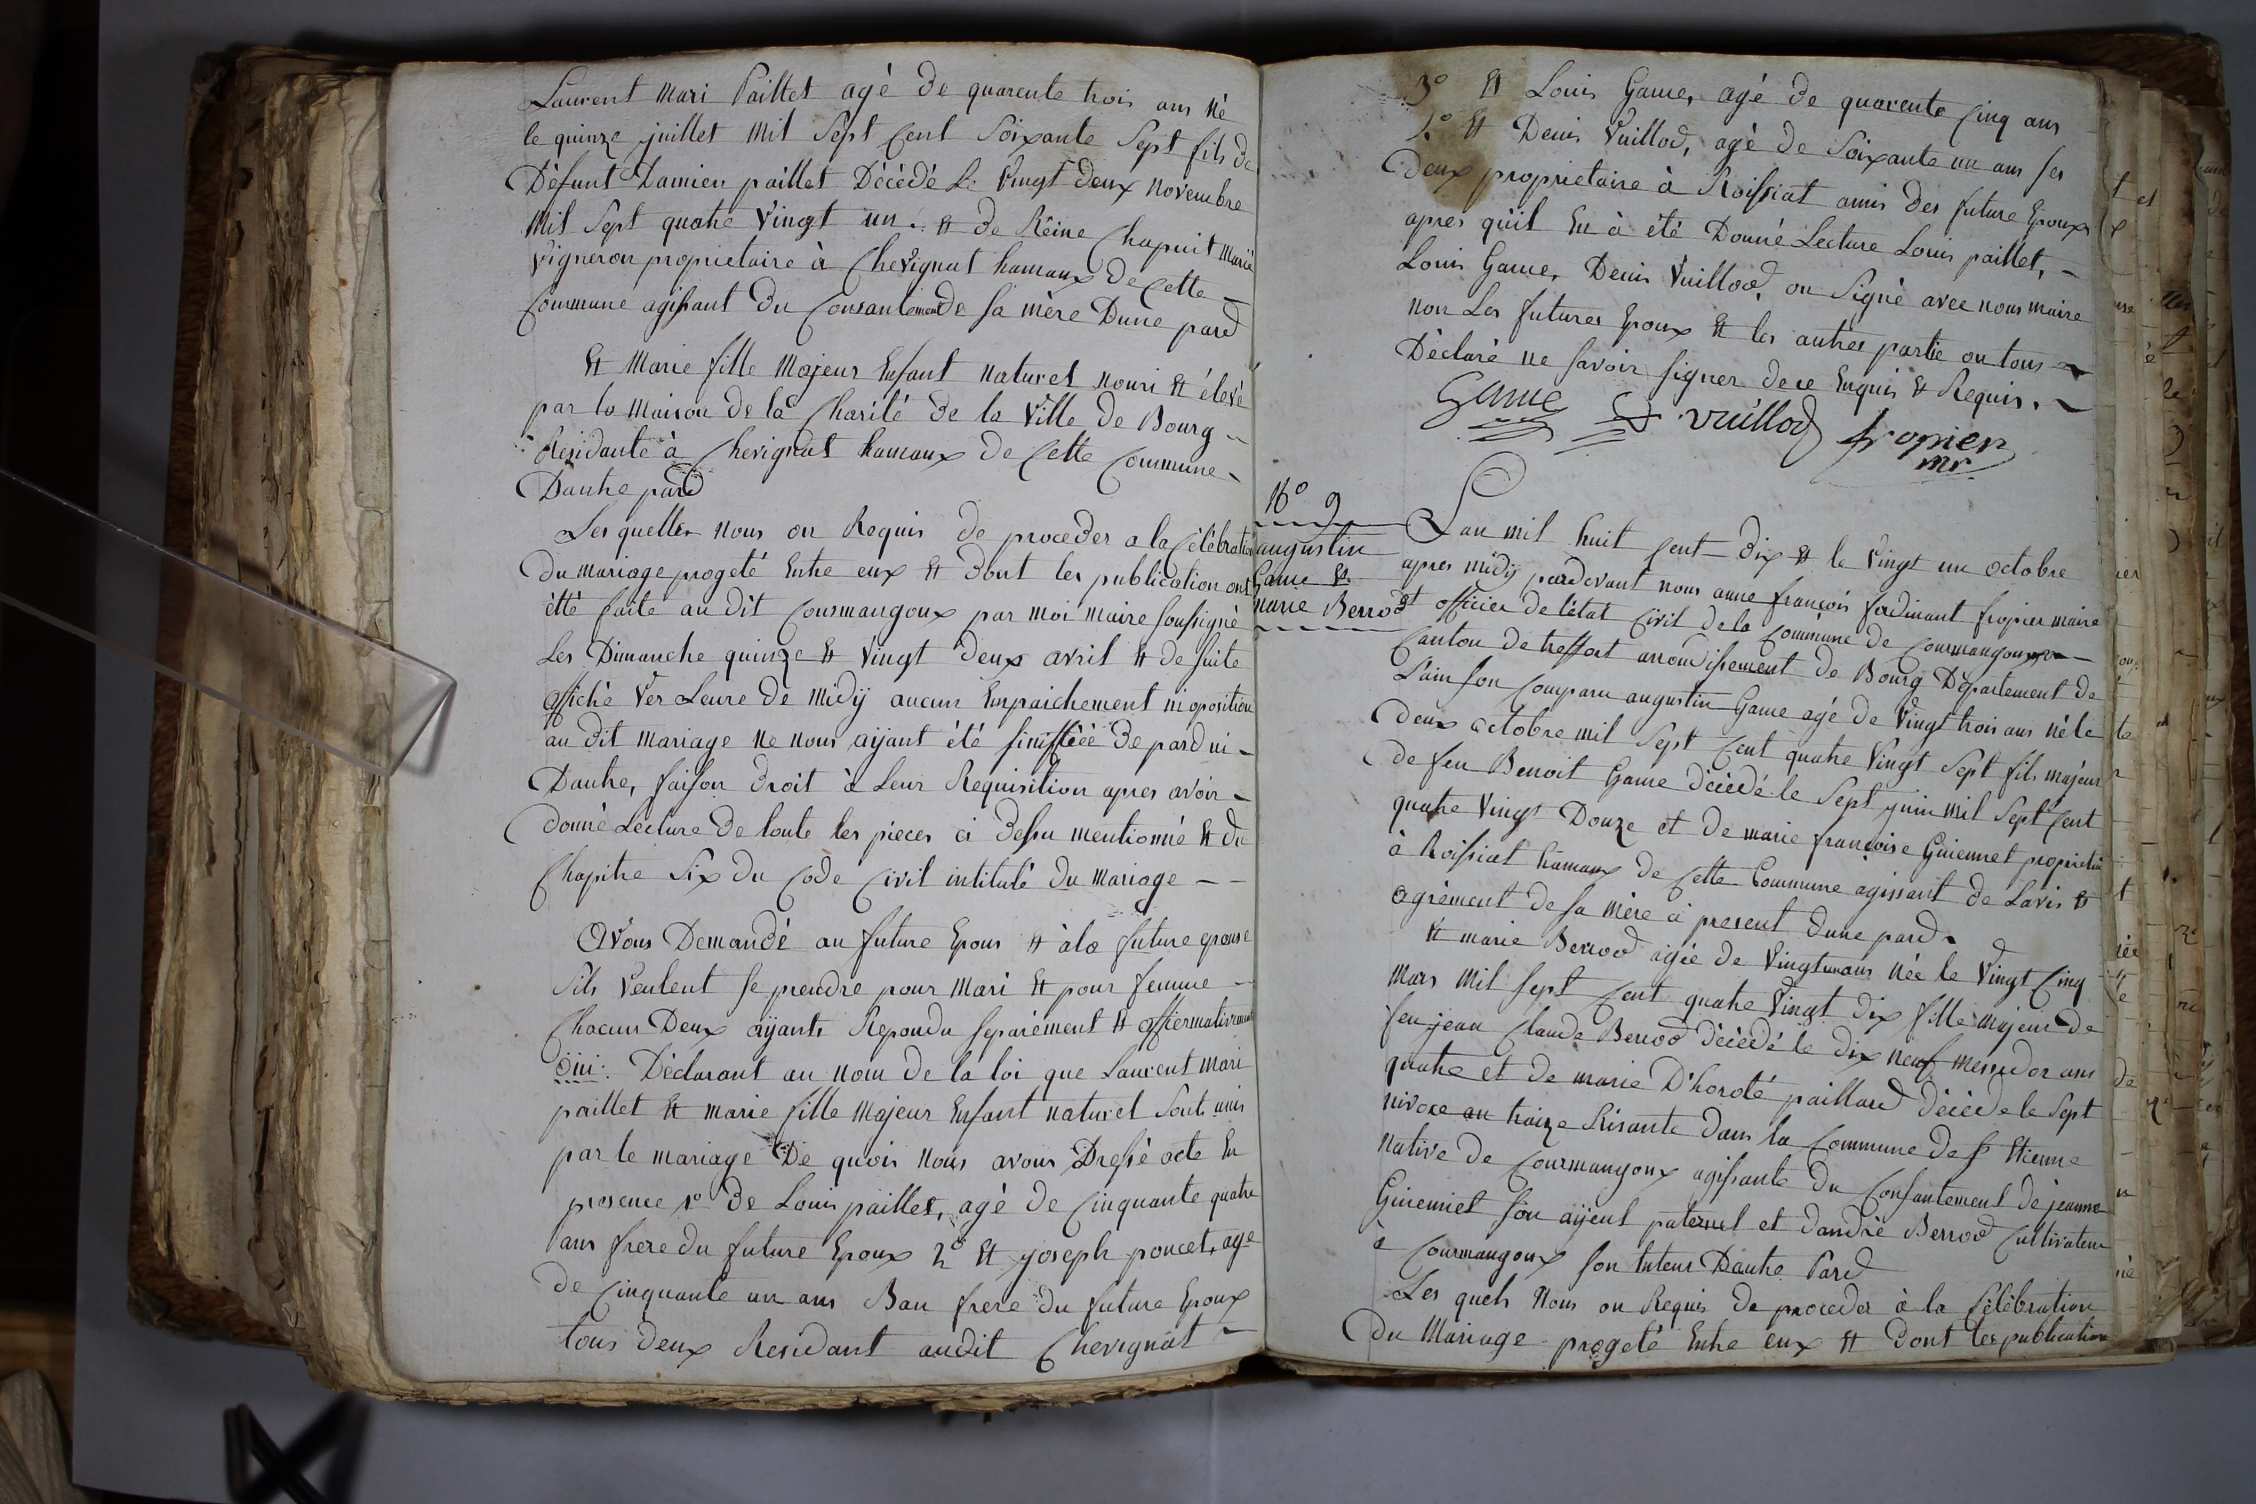 Laurent Mari Paillet agé de quarente trois ans né
le quinze juillet Mil Sept Cent Soixante Sept fils de
Défunt Damien paillet Décédé Le Vingt deux novembre
Mil Sept quatre Vingt un. et de Réine Chapuit Marié
Vigneron proprietaire à Chevignat hamaux de Cette
Commune agissant du Consantement de sa mère Dune pard
Et Marie fille Majeur Enfant naturel nouri et élevé
par la Maison de la Charité de la Ville de Bourg
Residante à Chevignat hamaux de Cette Commune
Dautre pard
Les quelles nous on Requis de proceder a la Célébration
du mariage progeté Entre eux et dont les publication ont
étté faite au dit Courmangoux par moi maire soussigné
Les Dimanche quinze et Vingt deux avril et de suite
affiché Ver Leure de midÿ aucun Enpaichement ni oposition
au dit mariage ne nous aÿant été sinifféé de pard ni
Dautre, faison droit à Leur Requisition apres avoir
donné Lecture de toute les pieces ci dessu mentionné et du
Chapitre Six du Code Civil intitulé du Mariage
Avons Demandé au future Epous et à la future epouse
Sils Veulent se prendre pour Mari et pour femme
Chacun Deux aÿants Repondu separément et affiermativement
oui. Déclarant au nom de la loi que Laurent Mari
paillet et marie fille majeur Enfant naturel Sont unis
par le mariage De quois nous avons Dressé acte En
presence 1º de Louis paillet, agé de Cinquante quatre
ans frere du future Epoux 2º et joseph poncet, agé
de Cinquante un ans Bau frere du future Epoux
tous deux Residant audit Chevignat
3º et Louis Game, agé de quarente Cinq ans
4º et Denis Vuillod, agé de Soixante un ans ses
deux proprietaire à Roissiat amis des future Epoux
apres qu'il En à été Donné Lecture Louis paillet,
Louis Game, Denis Vuillod, on Signé avec nous maire
non Les futures Epoux et les autres partie on tous
Déclaré ne savoir signer de ce Enquis et Requis.
Game D vuillod fropier
mr
Nº 9
augustin
Game et
marie Berrod
Lan mil huit Cent dix et le Vingt un octobre
apres midÿ pardevant nous anne françois ferdinant fropier maire
et officier de l'état Civil de la Commune de Courmangoux
Canton de treffort arrondissement de Bourg Departement de
Lain son Comparu augustin Game agé de Vingt trois ans né le
deux octobre mil Sept Cent quatre Vingt Sept fils majeur
de feu Benoit Game décédé le Sept juin mil Sept Cent
quatre Vingt Douze et de marie françoise Guiennet proprietaire
à Roissiat hamaux de Cette Commune agissant de Lavis et
agrément de sa mère à present dune pard
Et marie Berrod agée de Vingt un ans née le Vingt Cinq
mars mil Sept Cent quatre Vingt Dix fille majeur de
feu jean Claude Berrod décédé le dix neuf messidor ans
quatre et de marie D'horoté paillard décéde le Sept
nivoxe an traize Risante dans la Commune de St Etienne
native de Courmangoux agissante du Consantement de jeanne
Guiennet son aÿeul paternel et dandré Berrod Cultivateur
à Courmangoux son tuteur Dautre Pard
Les quels nous on Requis de proceder à la Célébration
du Mariage progeté Entre eux et dont les publication